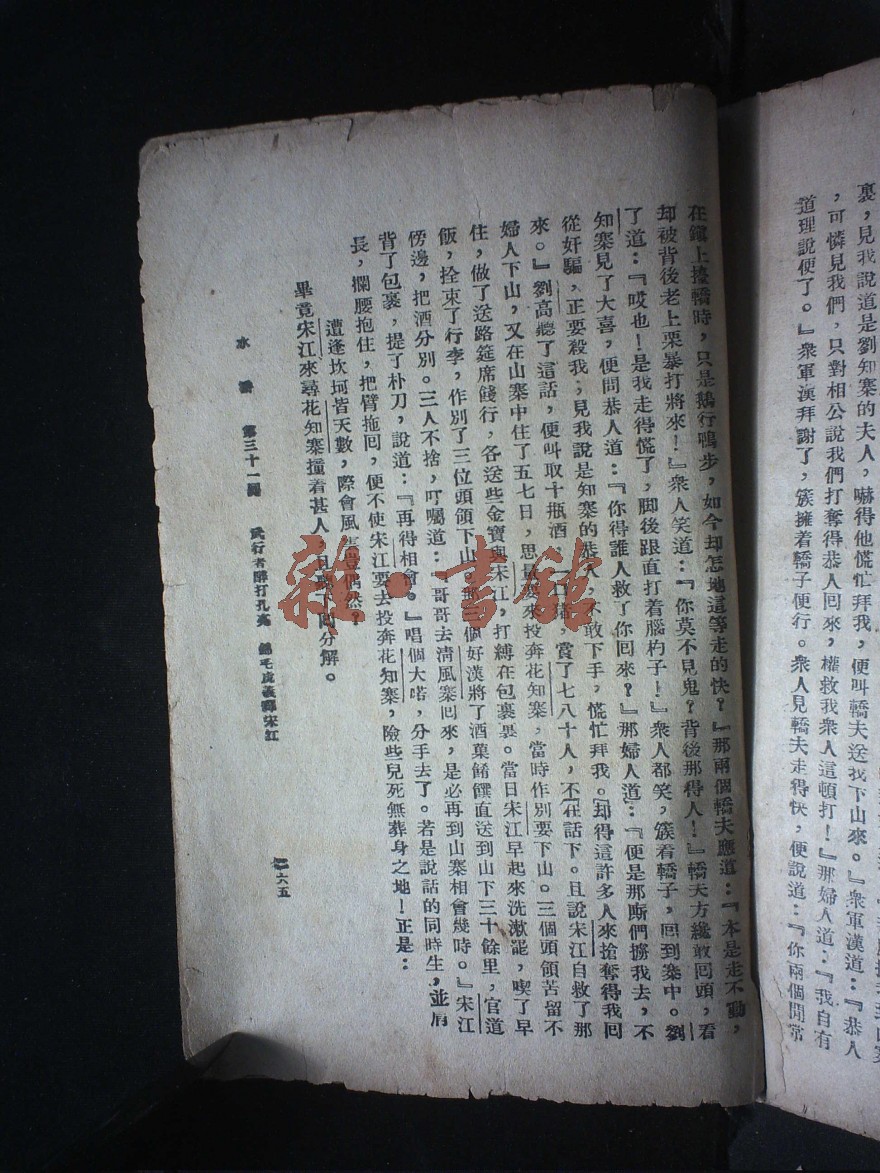 裏，見我說道是劉知寨的夫人，嚇得他慌忙拜我，便叫轎夫送我下山來。』衆軍漢道：『恭人
，可憐見我們，只對相公說我們打奪得恭人回來，權救我衆人這頓打！』那婦人道：『我自有
道理說便了。』衆軍漢拜謝了，簇擁着轎子便行。衆人見轎夫走得快，便說道：『你兩個閒常
在鎮上擡轎時，只是鵝行鴨步，如今却怎地這等走的快？』那兩個轎夫應道：『本是走不動，
却被背後老上栗暴打將來！』衆人笑道：『你莫不見鬼？背後那得人！』轎夫方纔敢回頭，看
了道：『哎也！是我走得慌了，脚後跟直打着腦杓子！』衆人都笑，簇着轎子，回到寨中。劉
知寨見了大喜，便問恭人道：『你得誰人救了你回來？』那婦人道：『便是那廝們擄我去，不
從奸騙，正要殺我；見我說是知寨的恭人，不敢下手，慌忙拜我。却得這許多人來搶奪得我回
來。』劉高聽了這話，便叫取十瓶酒，口猪，賞了七八十人，不在話下。且說宋江自救了那
婦人下山，又在山寨中住了五七日，思量要來投奔花知寨，當時作別要下山。三個頭領苦留不
住，做了送路筵席餞行，各送些金寶與宋江，打縛在包裹裏。當日宋江早起來洗漱罷，喫了早
飯，拴束了行李，作別了三位頭領下山。那三個好漢將了酒菓餚饌直送到山下三十餘里，官道
傍邊，把酒分別。三人不捨，叮囑道：『哥哥去淸風寨回來，是必再到山寨相會幾時。』宋江
背了包裹，提了朴刀，說道：『再得相會。』唱個大喏，分手去了。若是說話的同時生，並肩
長，攔腰抱住，把臂拖回，便不使宋江要去投奔花知寨，險些兒死無葬身之地！正是：
遭逢坎坷皆天數，際會風雲豈偶然？
畢竟宋江來尋花知寨撞着甚人，且聽下回分解。
水滸　第三十一回　武行者醉打孔亮　錦毛虎義釋宋江
六五
雜·書館